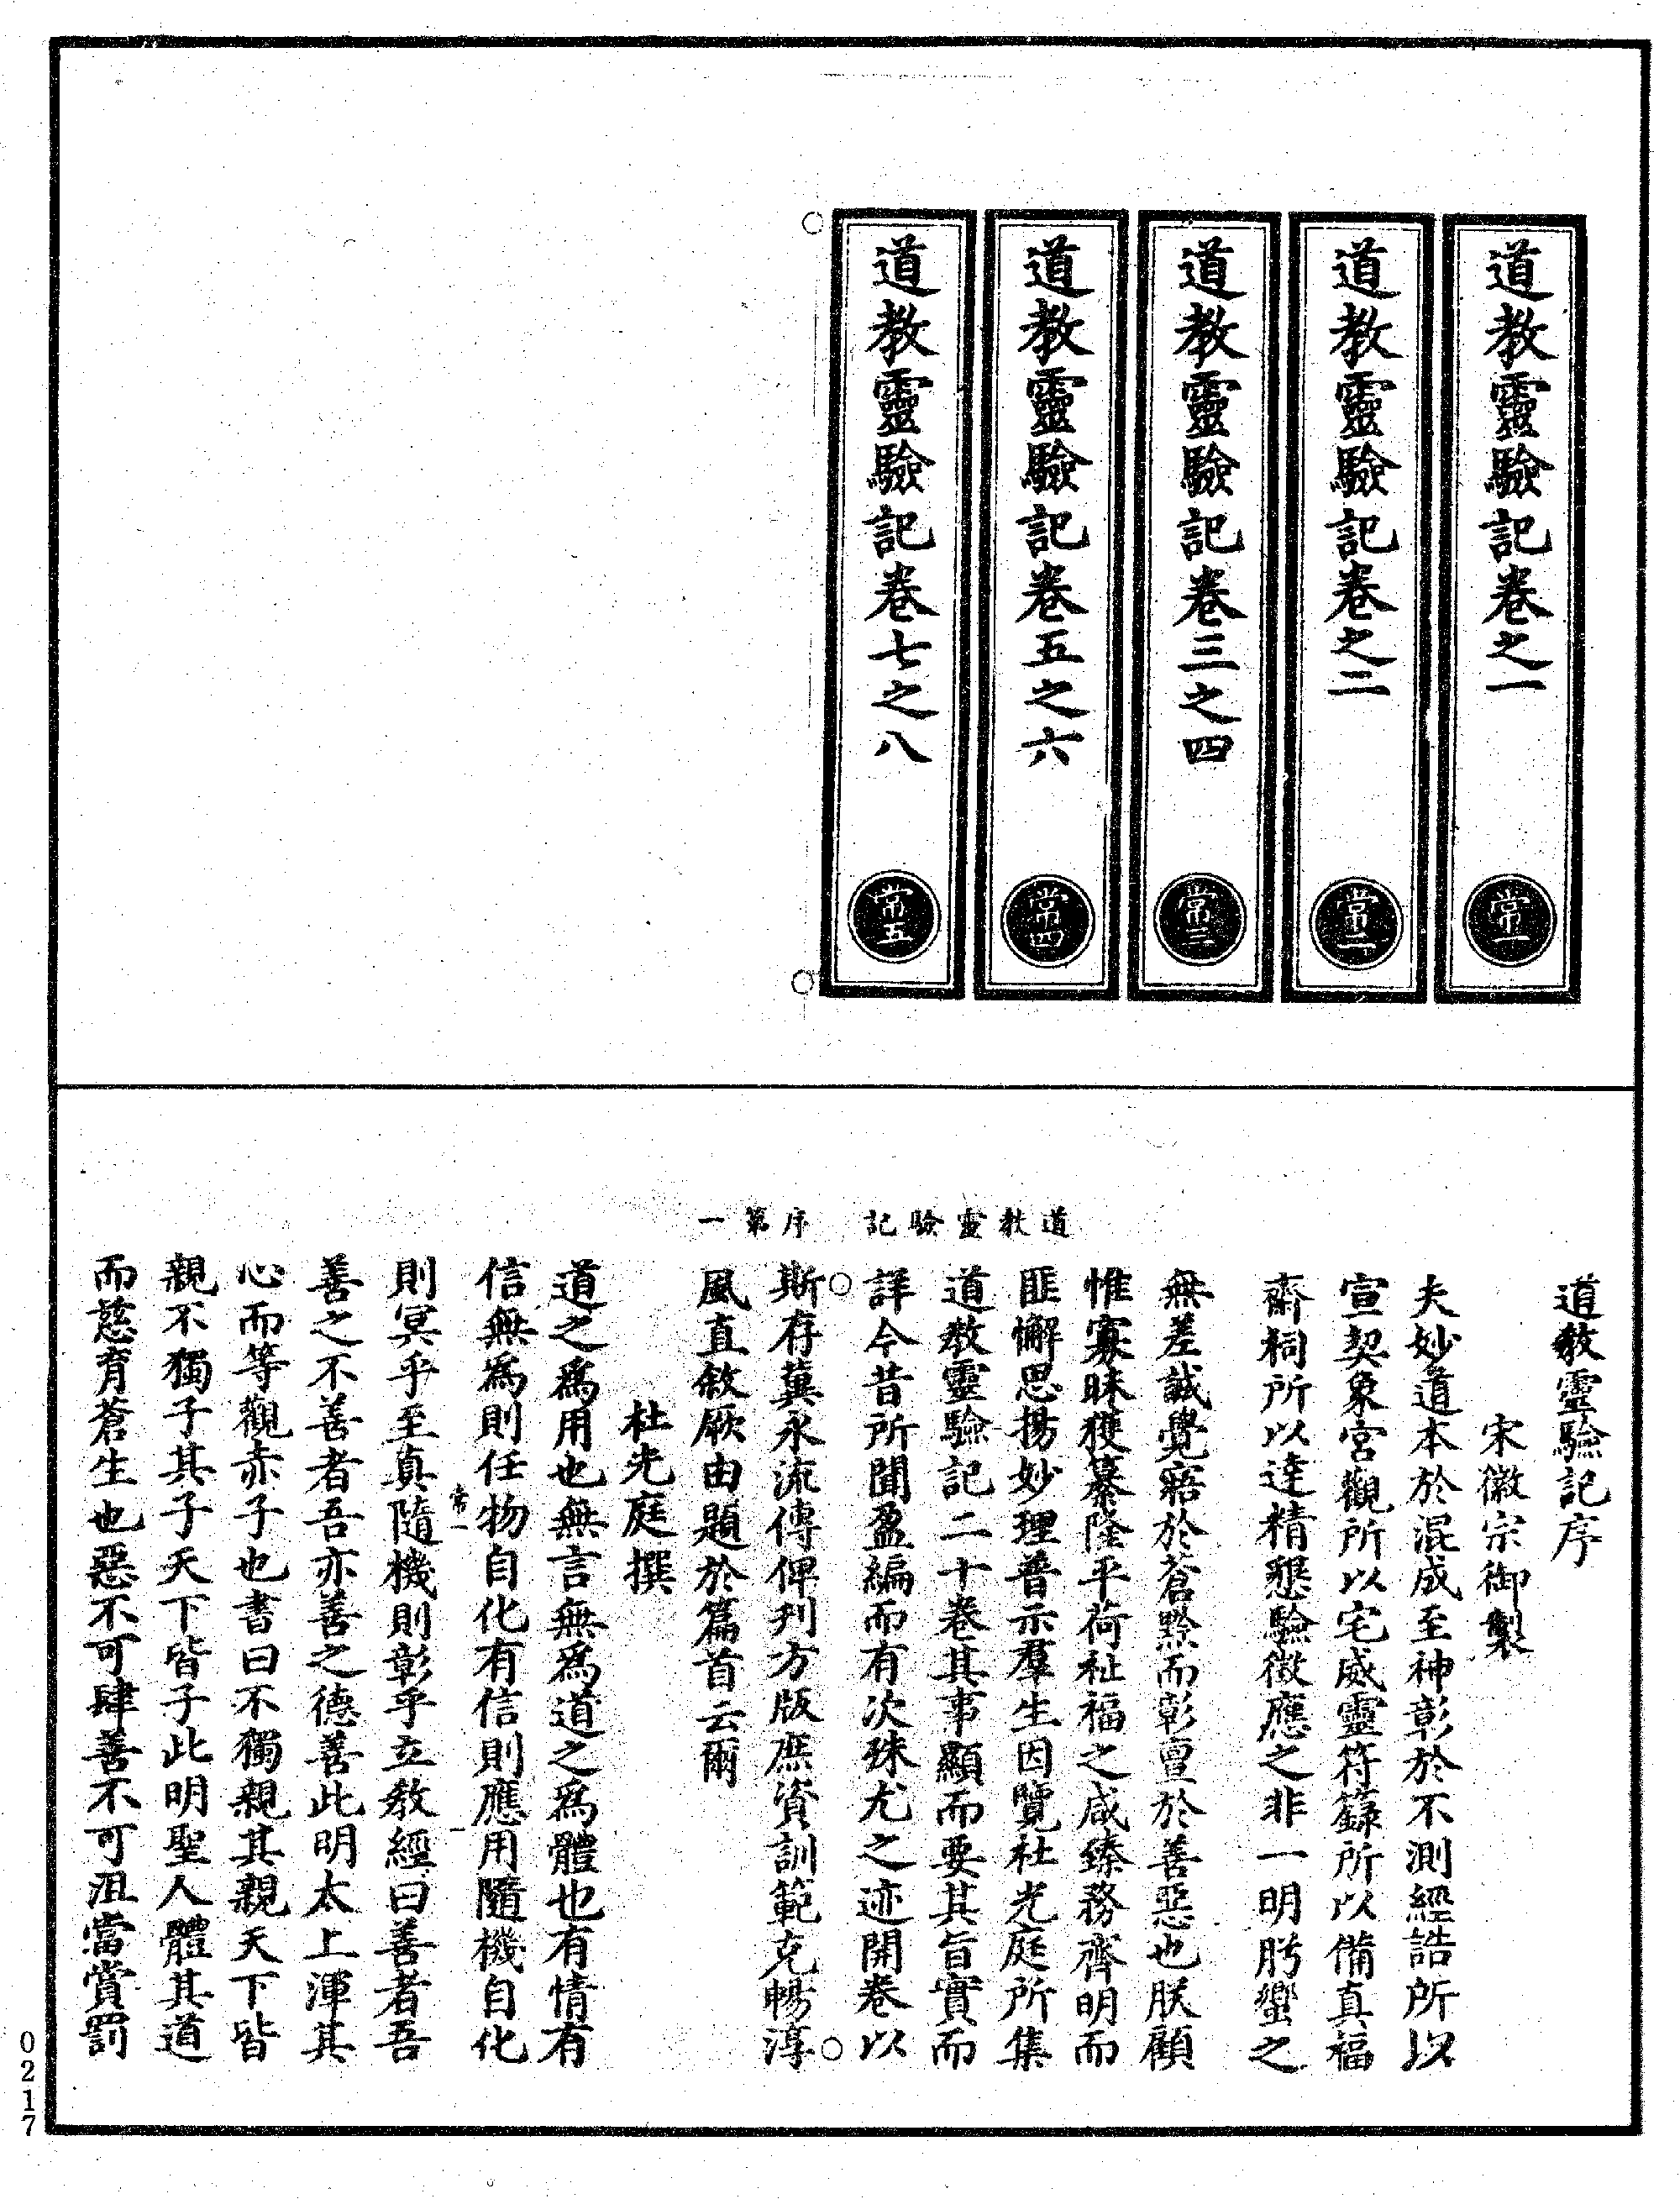 道教靈驗記卷之一
常一
道教靈驗記卷之二
常二
道教靈驗記卷三之四
常三
道教靈驗記卷五之六
常四
道教靈驗記卷七之八
常五
道教靈驗記序
宋徽宗御製
夫妙道本於混成至神彰於不測經誥所以
宣契象宮觀所以宅威靈符籙所以備真福
齋祠所以達精懇驗徵應之非一明肹蠁之
無差誠覺寤於蒼黔而彰亶於善惡也朕顧
惟寡昧獲纂隆平荷祉福之咸臻務齊明而
匪懈思揚妙理普示羣生因覽杜光庭所集
道教靈驗記二十卷其事顯而要其旨實而
詳今昔所聞盈編而有次殊尤之迹開卷以
道教靈驗記　序第一
斯存冀永流傳俾刋方版庶資訓範克暢淳
風直敘厥由題於篇首云爾
杜光庭撰
道之爲用也無言無爲道之爲體也有情有
信無爲則任物自化有信則應用隨機自化
常一
一
則冥乎至真隨機則彰乎立教經曰善者吾
善之不善者吾亦善之德善此明太上渾其
心而等觀赤子也書曰不獨親其親天下皆
親不獨子其子天下皆子此明聖人體其道
而慈育蒼生也惡不可肆善不可沮當賞罰
0217